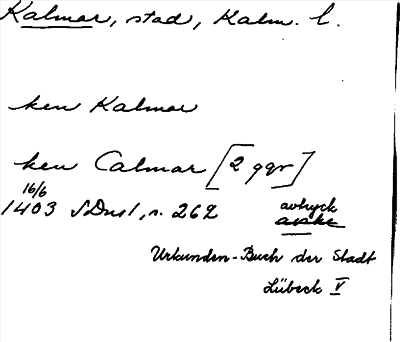 Kalmar, stad, Kalm. l.
ken Kalmar
ken Calmar [2 ggr]
16/6
1403 SDns 1, s. 262 avtryck
Urkunden-Buch der Stadt
Lübeck V